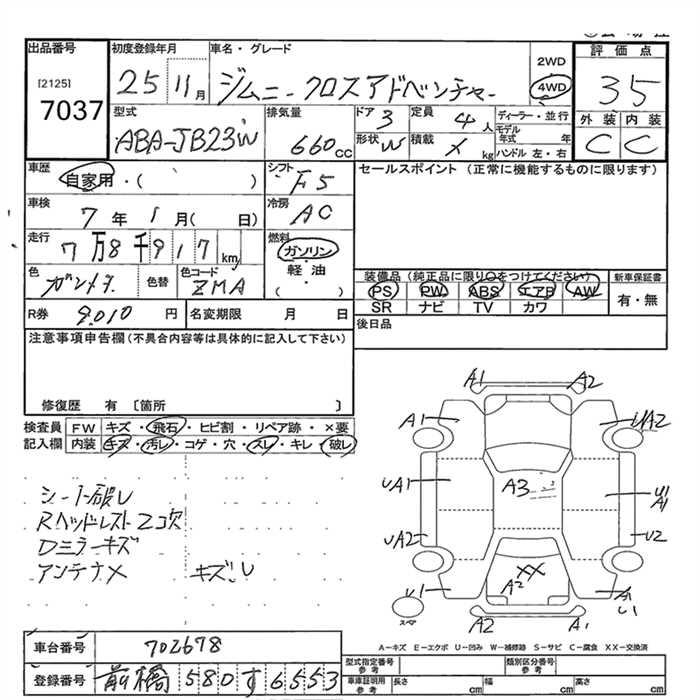 出品番号
[2125]
7037
初度登録年月
25 11月
車名・グレード
ジムニー クロスアドベンチャー
2WD
4WD
評価点
35
外装 内装
C C
型式
ABA-JB23W
排気量
660cc
ドア 3
定員 4人
形状 W
積載 X kg
ディーラー・並行
モデル年式 年
ハンドル 左・右
車歴
自家用・( )
シフト
F5
セールスポイント (正常に機能するものに限ります)
車検
7年 1月( 日)
冷房
AC
走行
7万8千917km
燃料
ガソリン
軽油
( )
色
ガンメタ
色替
色コード
ZMA
装備品 (純正品に限り○をつけてください)
PS PW ABS エアB AW
SR ナビ TV カワ
新車保証書
有・無
R券 9,010円
名変期限 月 日
後日品
注意事項申告欄 (不具合内容等は具体的に記入して下さい)
修復歴 有 〔箇所 〕
検査員記入欄
FW キズ・飛石・ヒビ割・リペア跡・×要
内装 キズ・汚レ・コゲ・穴・スレ・キレ・破レ
シート破レ
RヘッドレストZコ欠
Dミラーキズ
アンテナX キズ、U
A1 A2
A1 UA2
UA1 A3 U1 A1
UA2 U2
XX
A2
U1 A1 U1
スペア
A2 A1
A-キズ E-エクボ U-凹み W-補修跡 S-サビ C-腐食 XX-交換済
車台番号 702678
登録番号 前橋580す6553
型式指定番号 参考
類別区分番号 参考
車庫証明用 参考 長さ cm 幅 cm 高さ cm